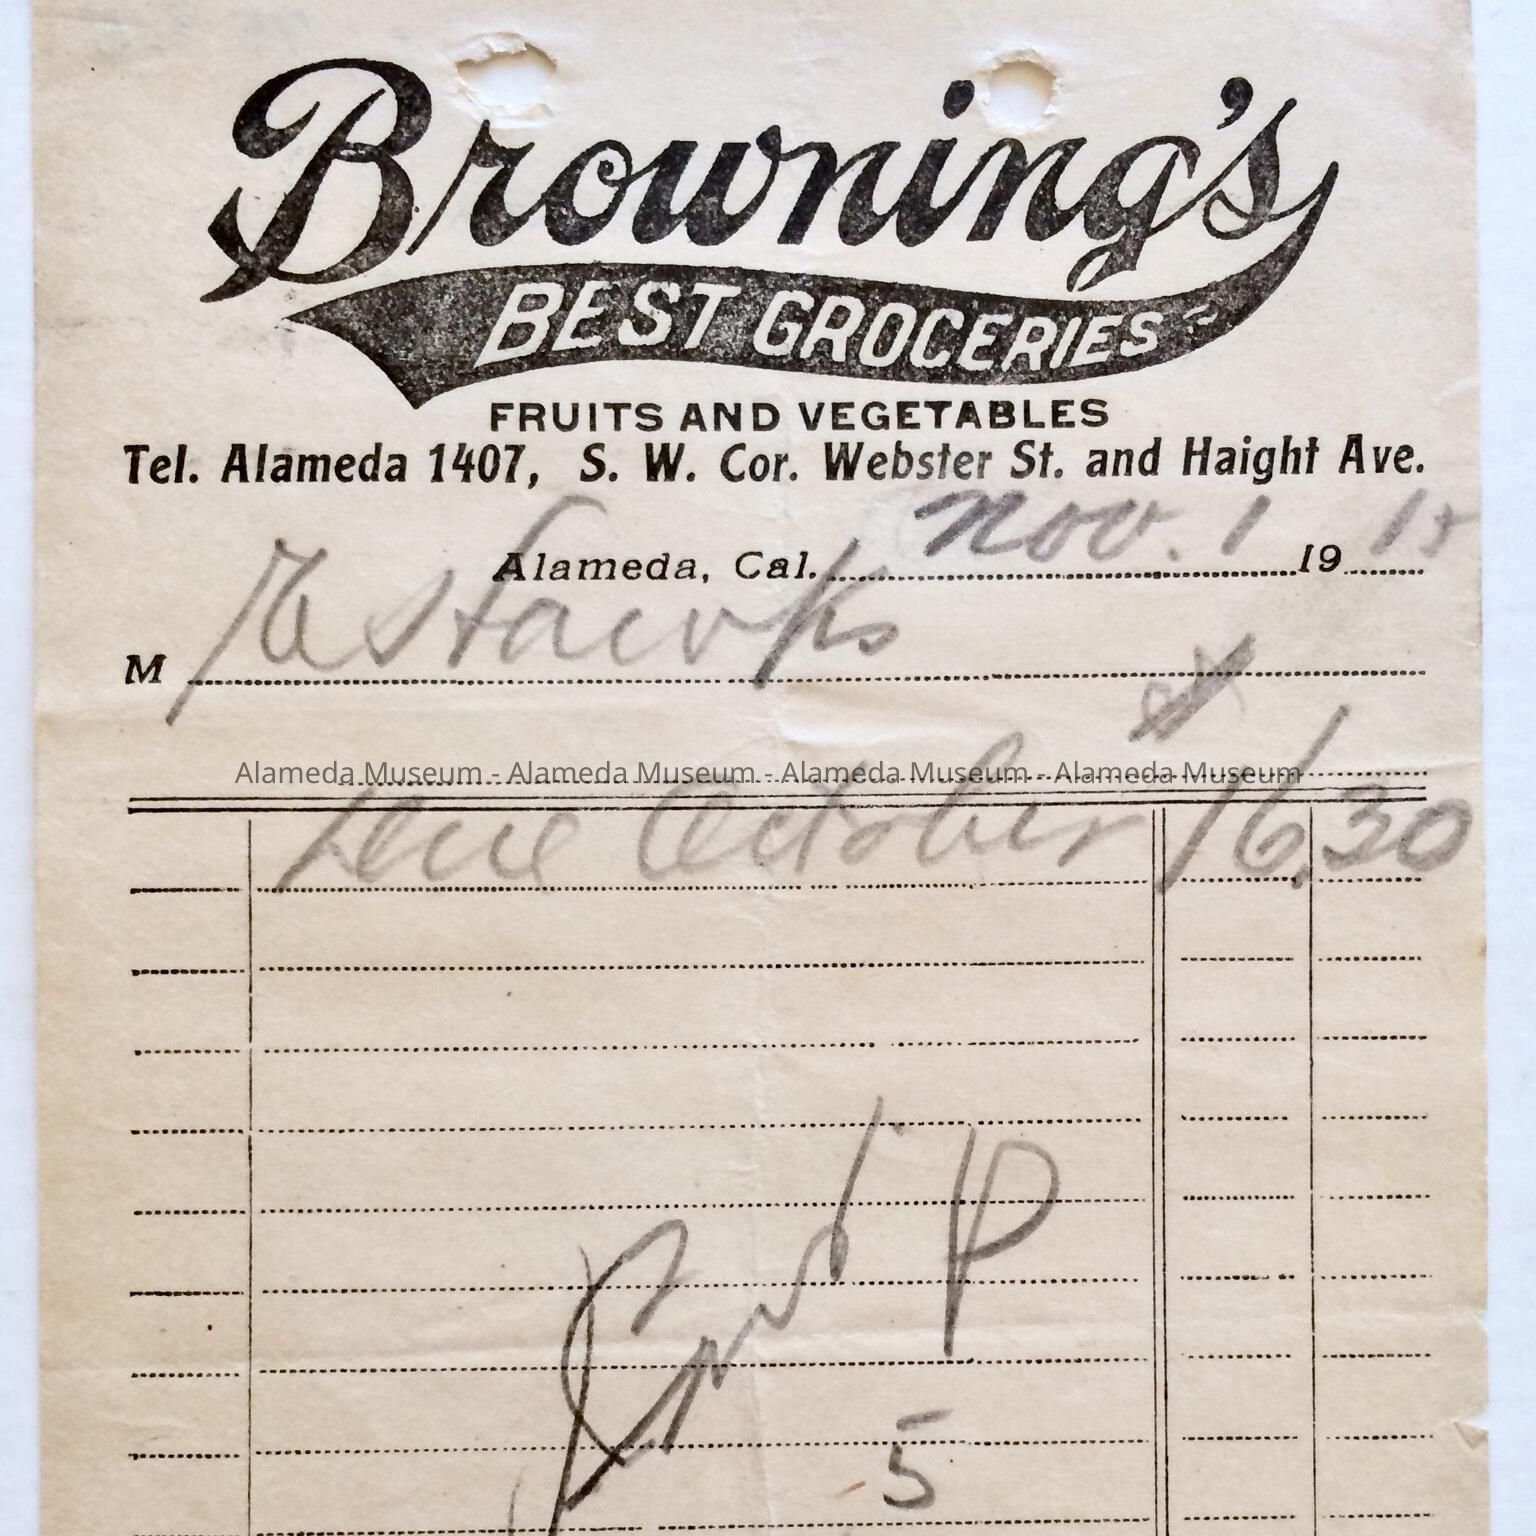 Browning's
BEST GROCERIES
FRUITS AND VEGETABLES
Tel. Alameda 1407, S. W. Cor. Webster St. and Haight Ave.
Alameda, Cal. Nov. 1 19 15
M
Alameda Museum - Alameda Museum - Alameda Museum - Alameda Museum
October 16.30
5